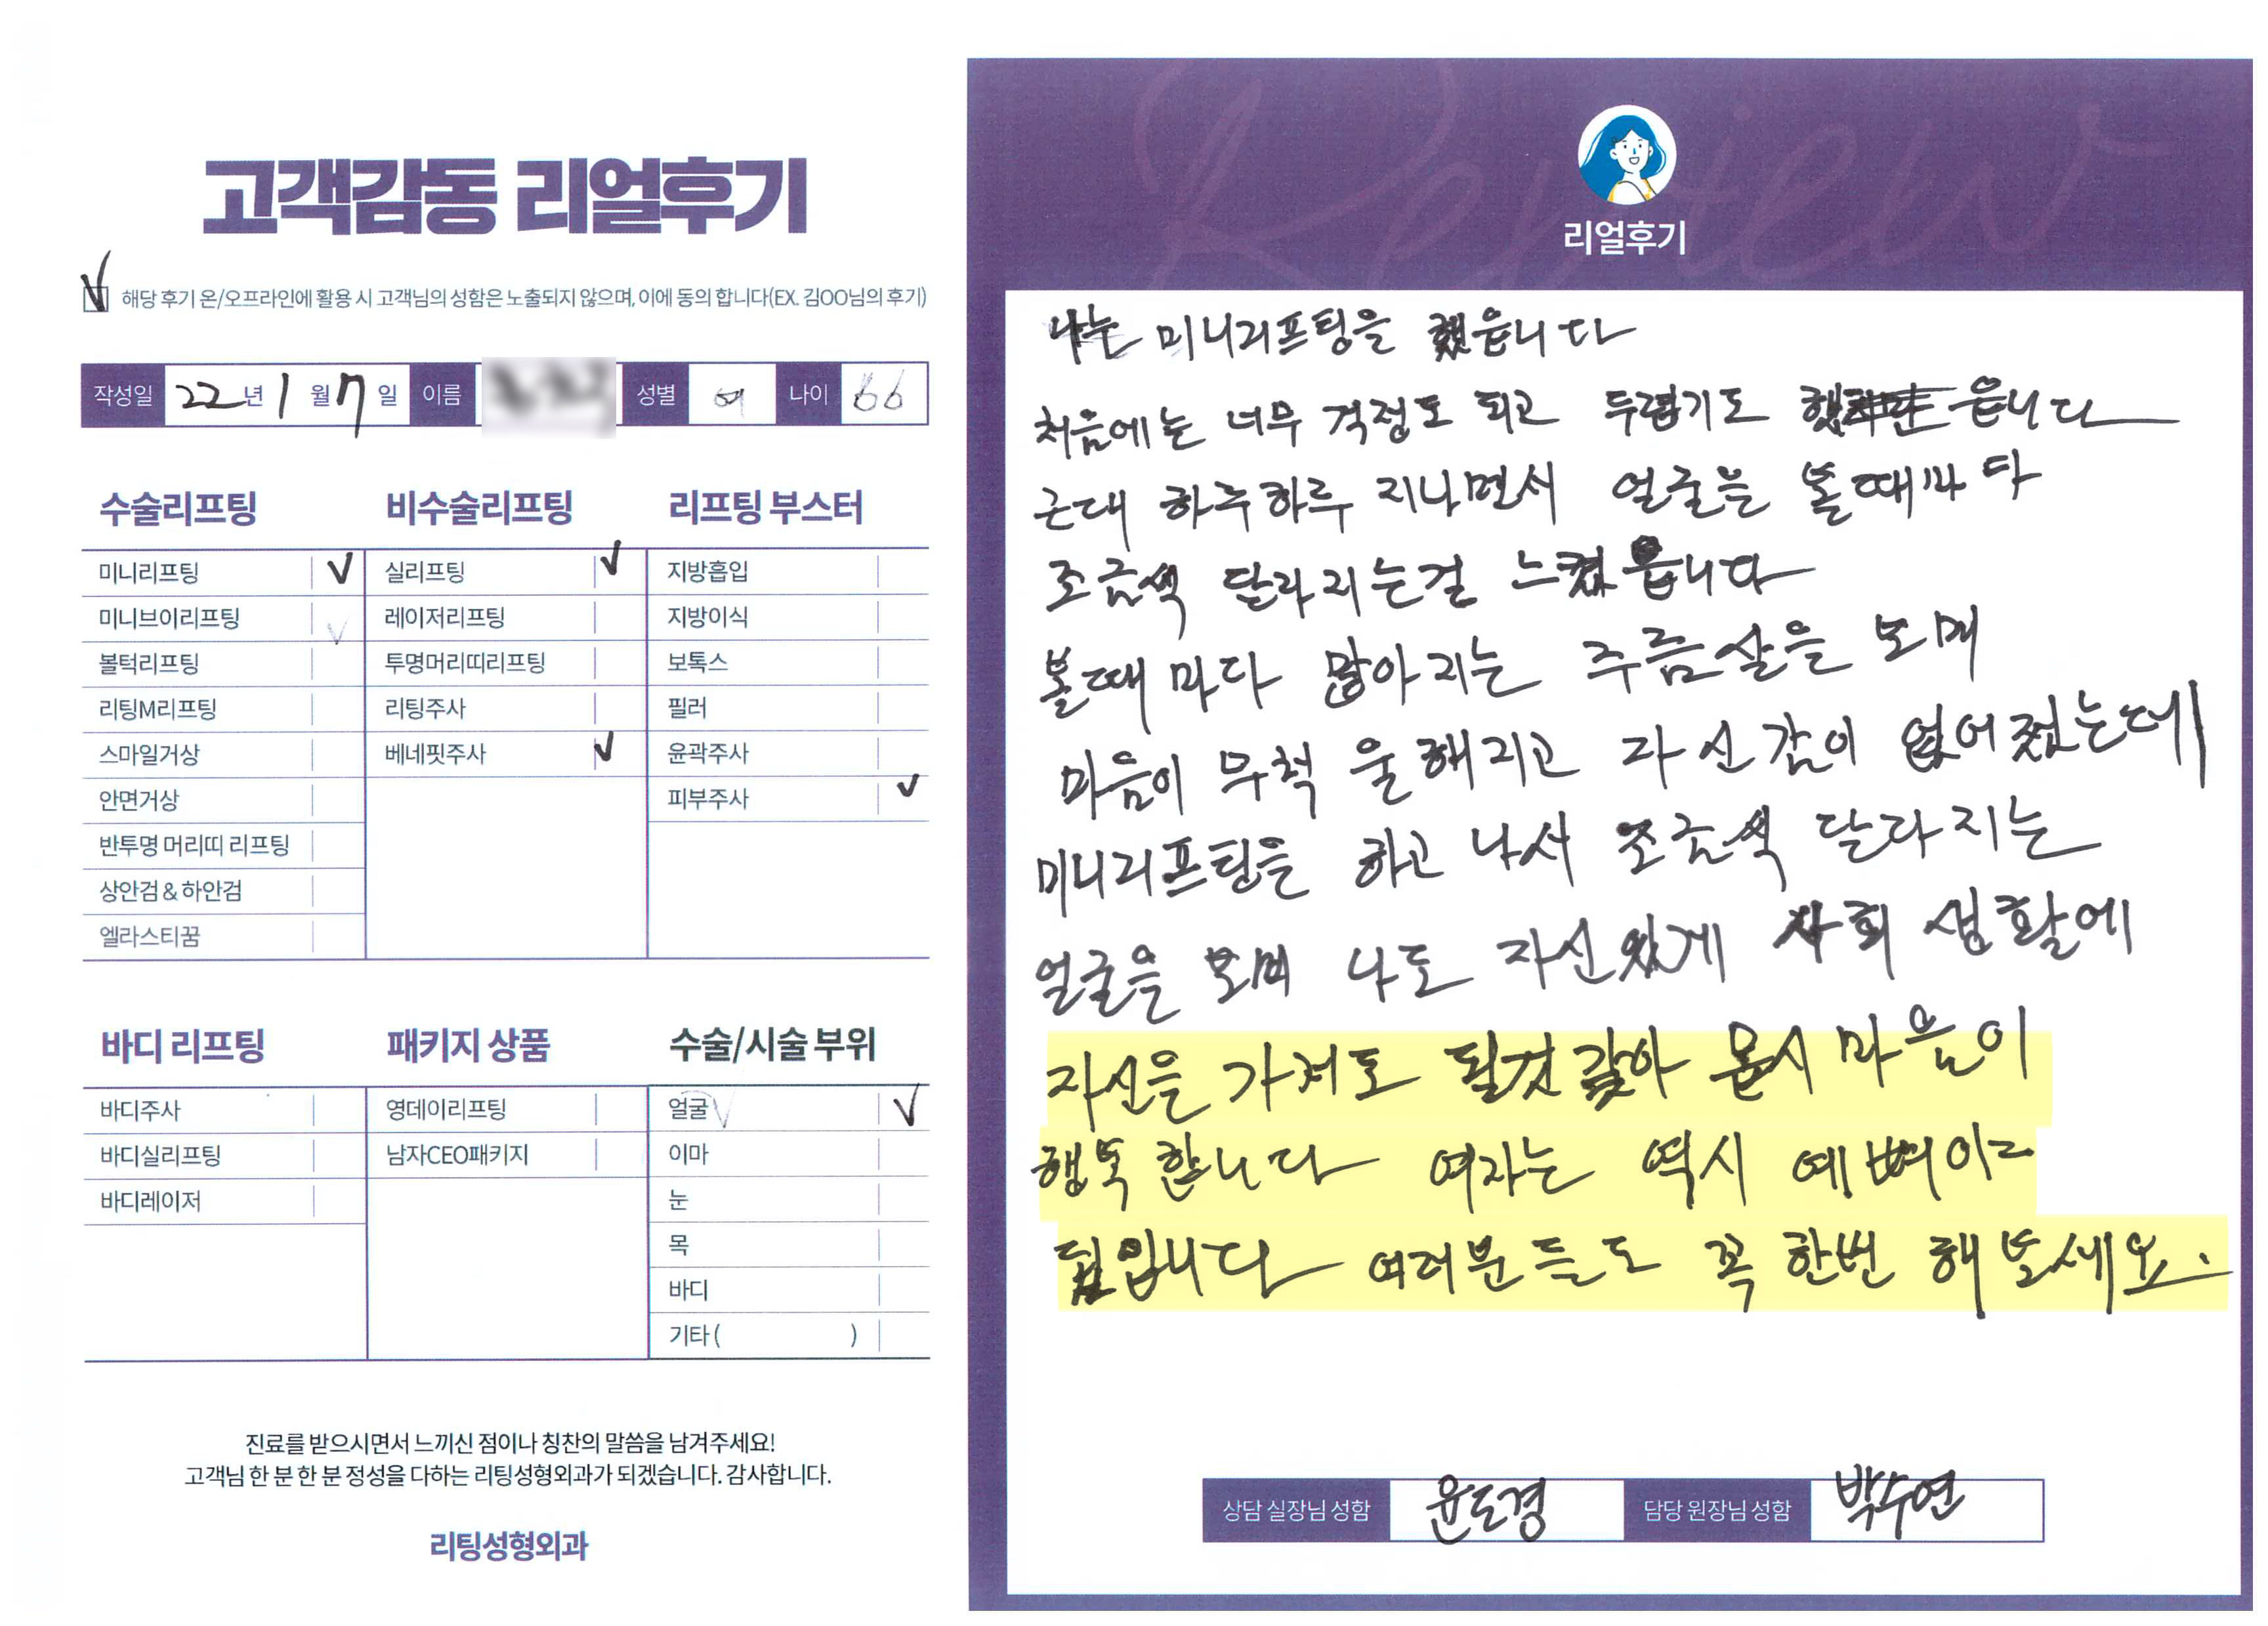 고객감동 리얼후기
해당 후기 온/오프라인에 활용 시 고객님의 성함은 노출되지 않으며, 이에 동의 합니다(EX. 김OO님의 후기)
작성일 22년 1월 7일 이름 성별 여 나이 66
수술리프팅
미니리프팅 ✓
미니브이리프팅 ✓
볼턱리프팅
리팅M리프팅
스마일거상
안면거상
반투명 머리띠 리프팅
상안검 & 하안검
엘라스티꿈
비수술리프팅
실리프팅 ✓
레이저리프팅
투명머리띠리프팅
리팅주사
베네핏주사 ✓
리프팅 부스터
지방흡입
지방이식
보톡스
필러
윤곽주사
피부주사 ✓
바디 리프팅
바디주사
바디실리프팅
바디레이저
패키지 상품
영데이리프팅
남자CEO패키지
수술/시술 부위
얼굴 ✓
이마
눈
목
바디
기타 ( )
진료를 받으시면서 느끼신 점이나 칭찬의 말씀을 남겨주세요!
고객님 한 분 한 분 정성을 다하는 리팅성형외과가 되겠습니다. 감사합니다.
리팅성형외과
Review
리얼후기
나는 미니리프팅을 했읍니다
처음에는 너무 걱정도 되고 두렵기도 했읍니다
근대 하루하루 지나면서 얼굴을 볼때마다
조금씩 달라지는걸 느꼈읍니다
볼때마다 많아지는 주름살을 보며
마음이 무척 울해지고 자신감이 없어졌는데
미니리프팅을 하고 나서 조금씩 달라지는
얼굴을 보며 나도 자신있게 사회 생활에
자신을 가져도 될것 같아 마음이
행복합니다 여자는 역시 예뻐이
입니다 여러분들도 꼭 한번 해보세요.
상담 실장님 성함 윤도경 담당 원장님 성함 박수연